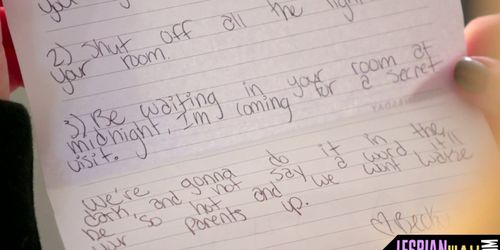 2) Shut off all the
your room.
3) Be waiting in your room at
midnight. I'm coming for a secret
visit.
we're gonna do it in the
dark, and not say a word. It'll
be so hot and we wont wake
parents up.
♡Becky
LESBIAN